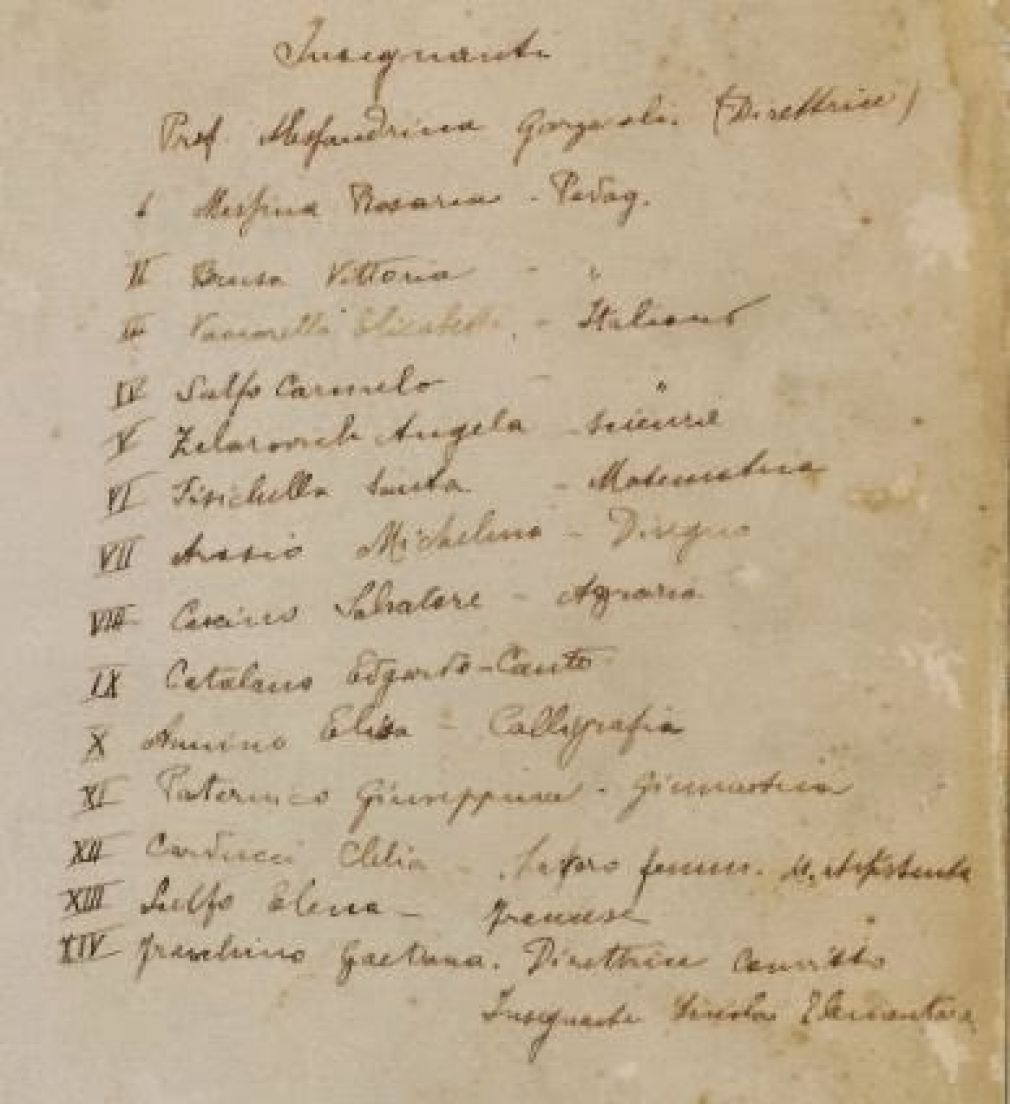 Insegnanti
Prof. Alessandrina (Direttrice)
I Messina Rosaria - Pedag.
II Brusa Vittoria - "
III Elisabetta - Italiano
IV Carmelo - "
V Angela - scienze
VI Fisichella Santa - Matematica
VII Michelina - Disegno
VIII Cascino Salvatore - Agraria
IX Catalano Edgardo - Canto
X Annino Elisa - Calligrafia
XI Paternico Giuseppina - Ginnastica
XII Carducci Clelia - femm. M. Assistente
XIII Elena - francese
XIV Franchino Gaetana. Direttrice Convitto
Insegnante Scuola Elementare